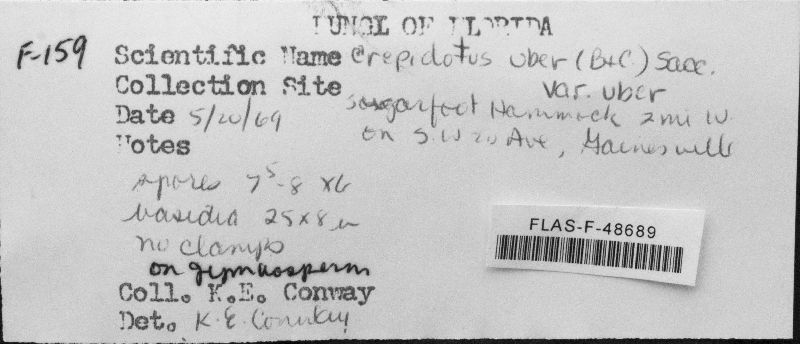 FUNGI OF FLORIDA
F-159 Scientific Name Crepidotus uber (B+C.) Sacc.
var. uber
Collection Site Sugarfoot Hammock 2 mi W.
on S.W 20 Ave, Gainesville
Date 5/20/69
Notes
spores 7⁵-8 x6
basidia 25x8 u
no clamps
on gymnosperm
Coll. K.E. Conway
Det. K.E. Conway
FLAS-F-48689